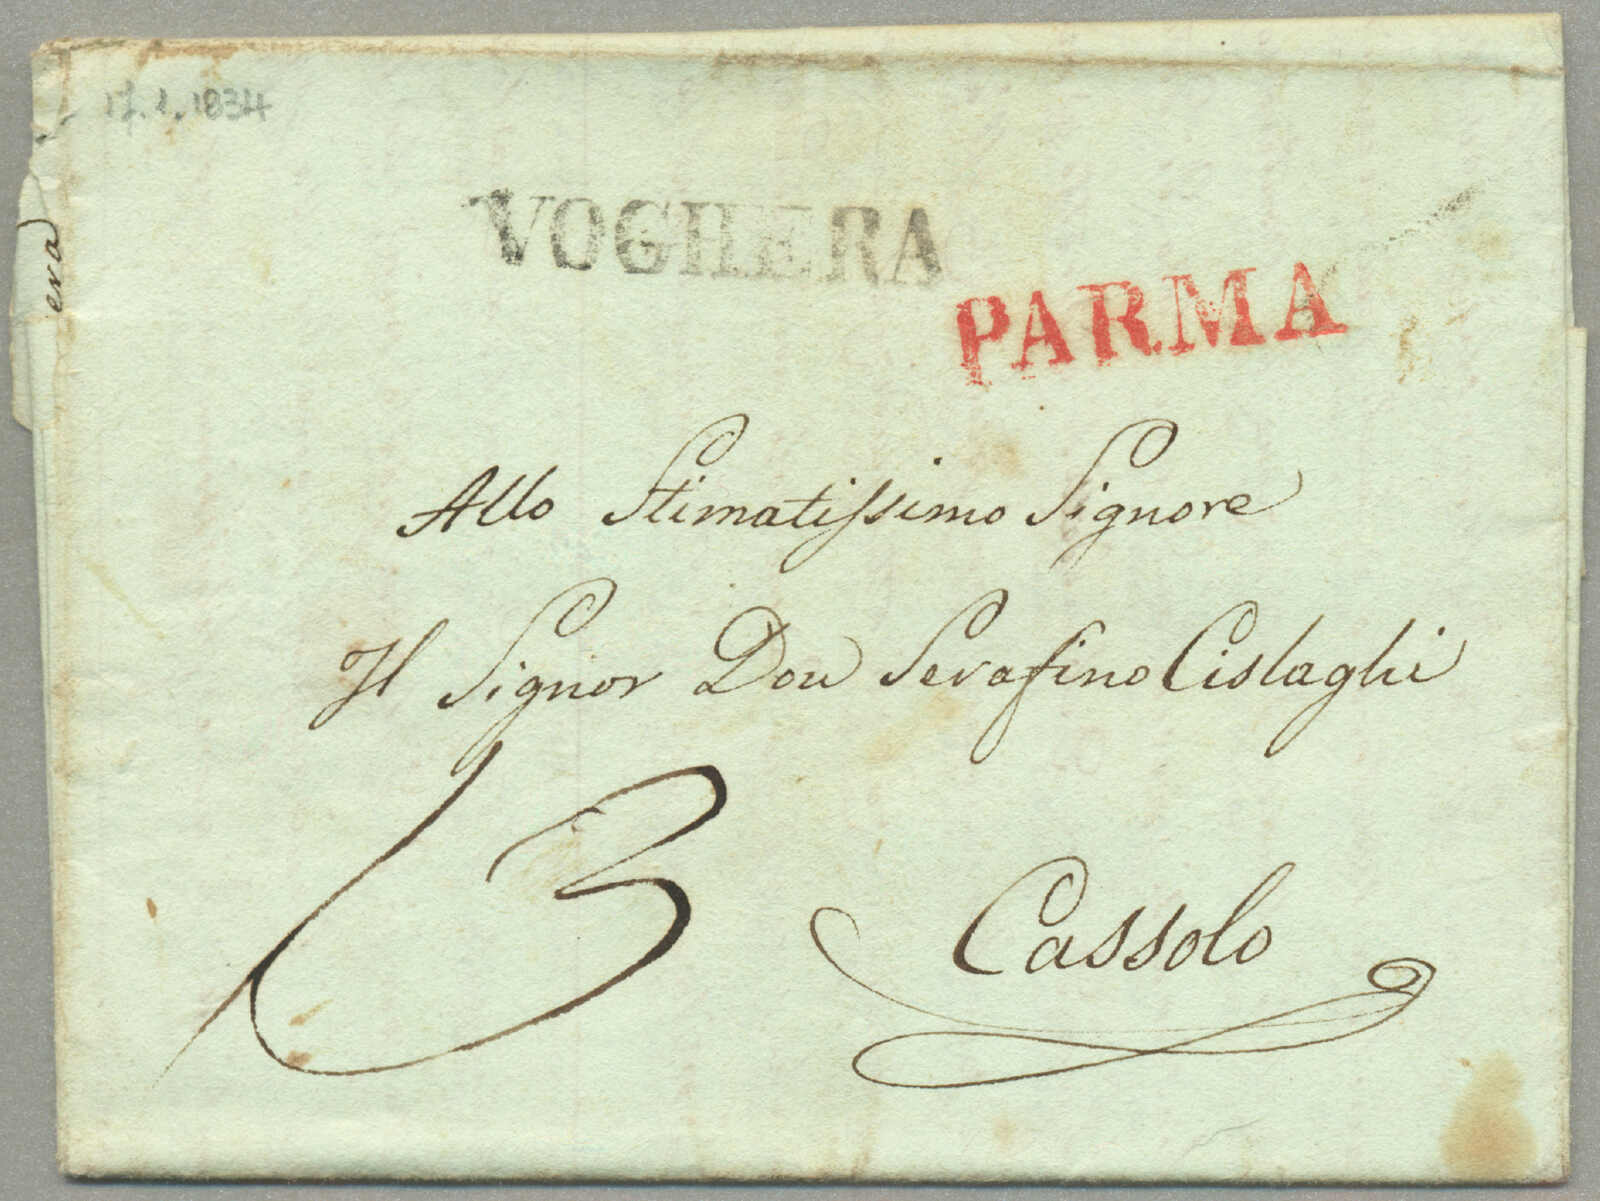 17.1.1834
VOGHERA
PARMA
era
Allo Stimatissimo Signore
Il Signor Don Serafino Cislaghi
13
Cassolo